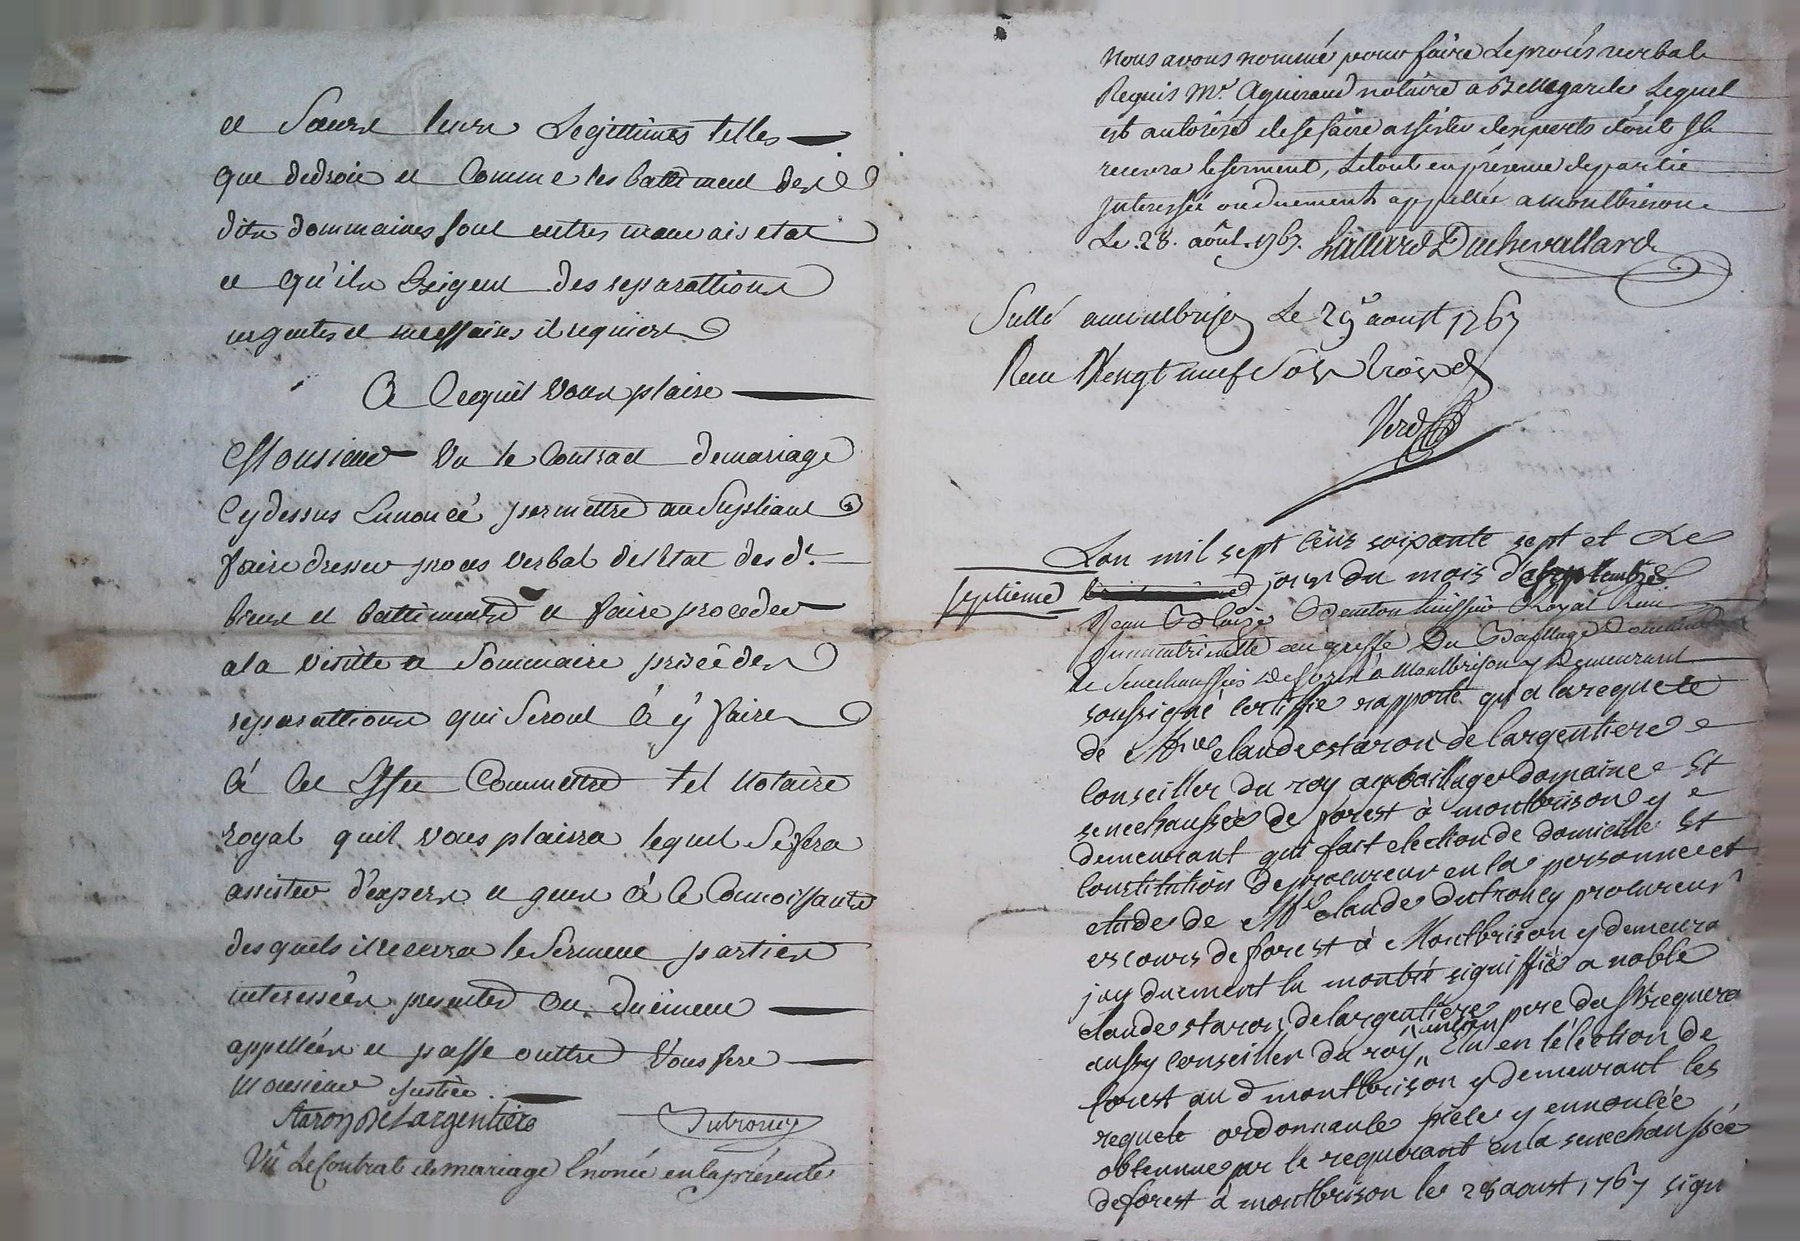 et Sœurs leurs Legittimes telles
que dedroit et Comme les battiment desd
dits dommaines sont entres mauvais etat
et qu'ils Exigent des reparattions
urgentes et necessaires il requiert
A Ce quil vous plaise
Monsieur vu le Contract demariage
Cydessus Enoncé permettre au Supliant
faire dresser proces verbal de l'état des d.
biens et battiments et faire proceder
a la visitte et Sommaire prisée des
reparattions qui Seront à y faire
à Cet Effet Commettre tel notaire
royal quil vous plaira lequel Se fera
assister d'expers et gens à Ce Connoissants
desquels il recevra le Serment parties
interessées presentes ou duëment
appellées et passé outtre Vous fere
Monsieur justice.
Staron De Largentiere Dutroncy
Vû Le Contrat de mariage Enoncé en la présente
nous avons nommé pour faire Le procés verbal
Requis Mr. Aguiraud notaire a Bellegarde Lequel
est autorisé de se faire assister d'experts dont Il
recevra le serment, Le tout en présence de partie
Interessée ou duement appellée a montbrison
Le 28. août 1767. Duchevallard
Sellé a montbrison Le 29 aoust 1767
Reçu Vengt neuf Sols trois d
Verd
Lan mil sept cens soixante sept et Le
septieme jour du mois de septembre
Jean huissier Royal
Immatriculle au greffe Du Baillage Domaine
et Senechaussée de forest a Montbrison y Demeurant
soussigné certiffie rapporte qu'a la requete
de Mre claude staron de largentiere
conseiller du roy au baillage domaine Et
senechaussée de forest à montbrison y
demeurant qui fait election de domicille Et
Constitution de procureur en la personne et
etude de Me claude dutroncy procureur
es cours de forest à Montbrison y demeura
jay duement la montré signiffié a noble
claude staron de largentiere pere du Sr requera
aussy conseiller du roy ancien Elu en l'élection de
forest au d montbrison y demeurant les
requete ordonnance piece y ennoncée
obtenue par le requerant en la senechaussée
de forest a montbrison le 28 aoust 1767 sign